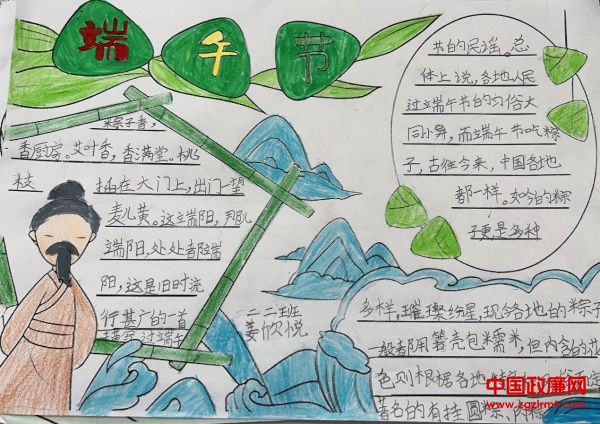 端午节
粽子香，
香厨房。艾叶香，香满堂。桃
枝
插在大门上，出门一望
麦儿黄。这端阳，那儿
端阳，处处都端
阳，这是旧时流
行甚广的一首
描写过端午
节的民谣。总
体上说，各地人民
过端午节的习俗大
同小异，而端午节吃粽
子，古往今来，中国各地
都一样。如今的粽
子更是多种
二二班
姜欣悦
多样，璀璨纷呈。现今各地的粽子
一般都用箬壳包糯米，但内含的花
色则根据各地
著名的有桂圆粽、肉粽
中国政廉网
www.zgzlrmt.com